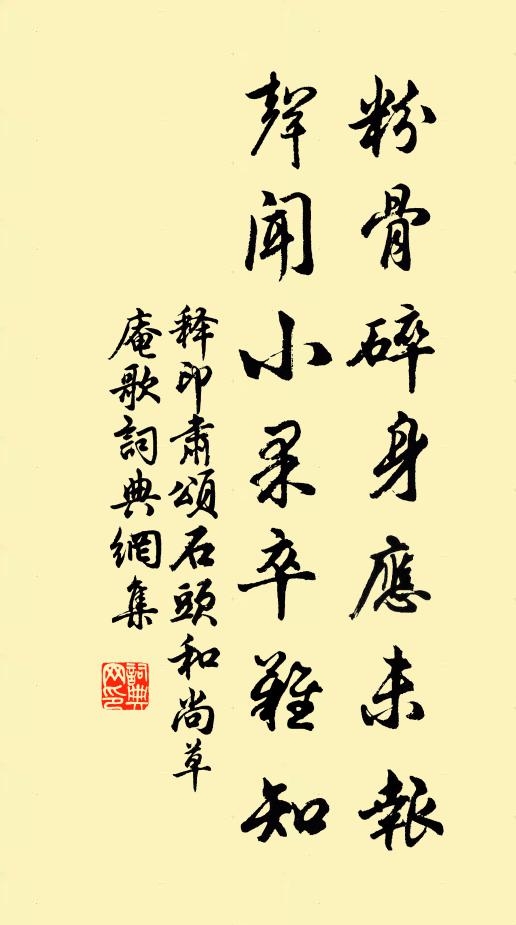 粉骨碎身應未報
聲聞小果卒難知
释印肅頌石頭和尚草
庵歌詞典網集
詞典网印